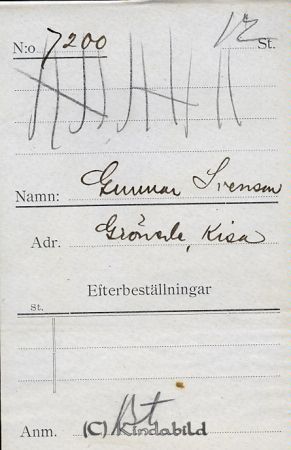 N:o 7200 12 St.
Namn: Gunnar Svenson
Adr. Kisa
Efterbeställningar
St.
Bt
Anm. (C) Kindabild